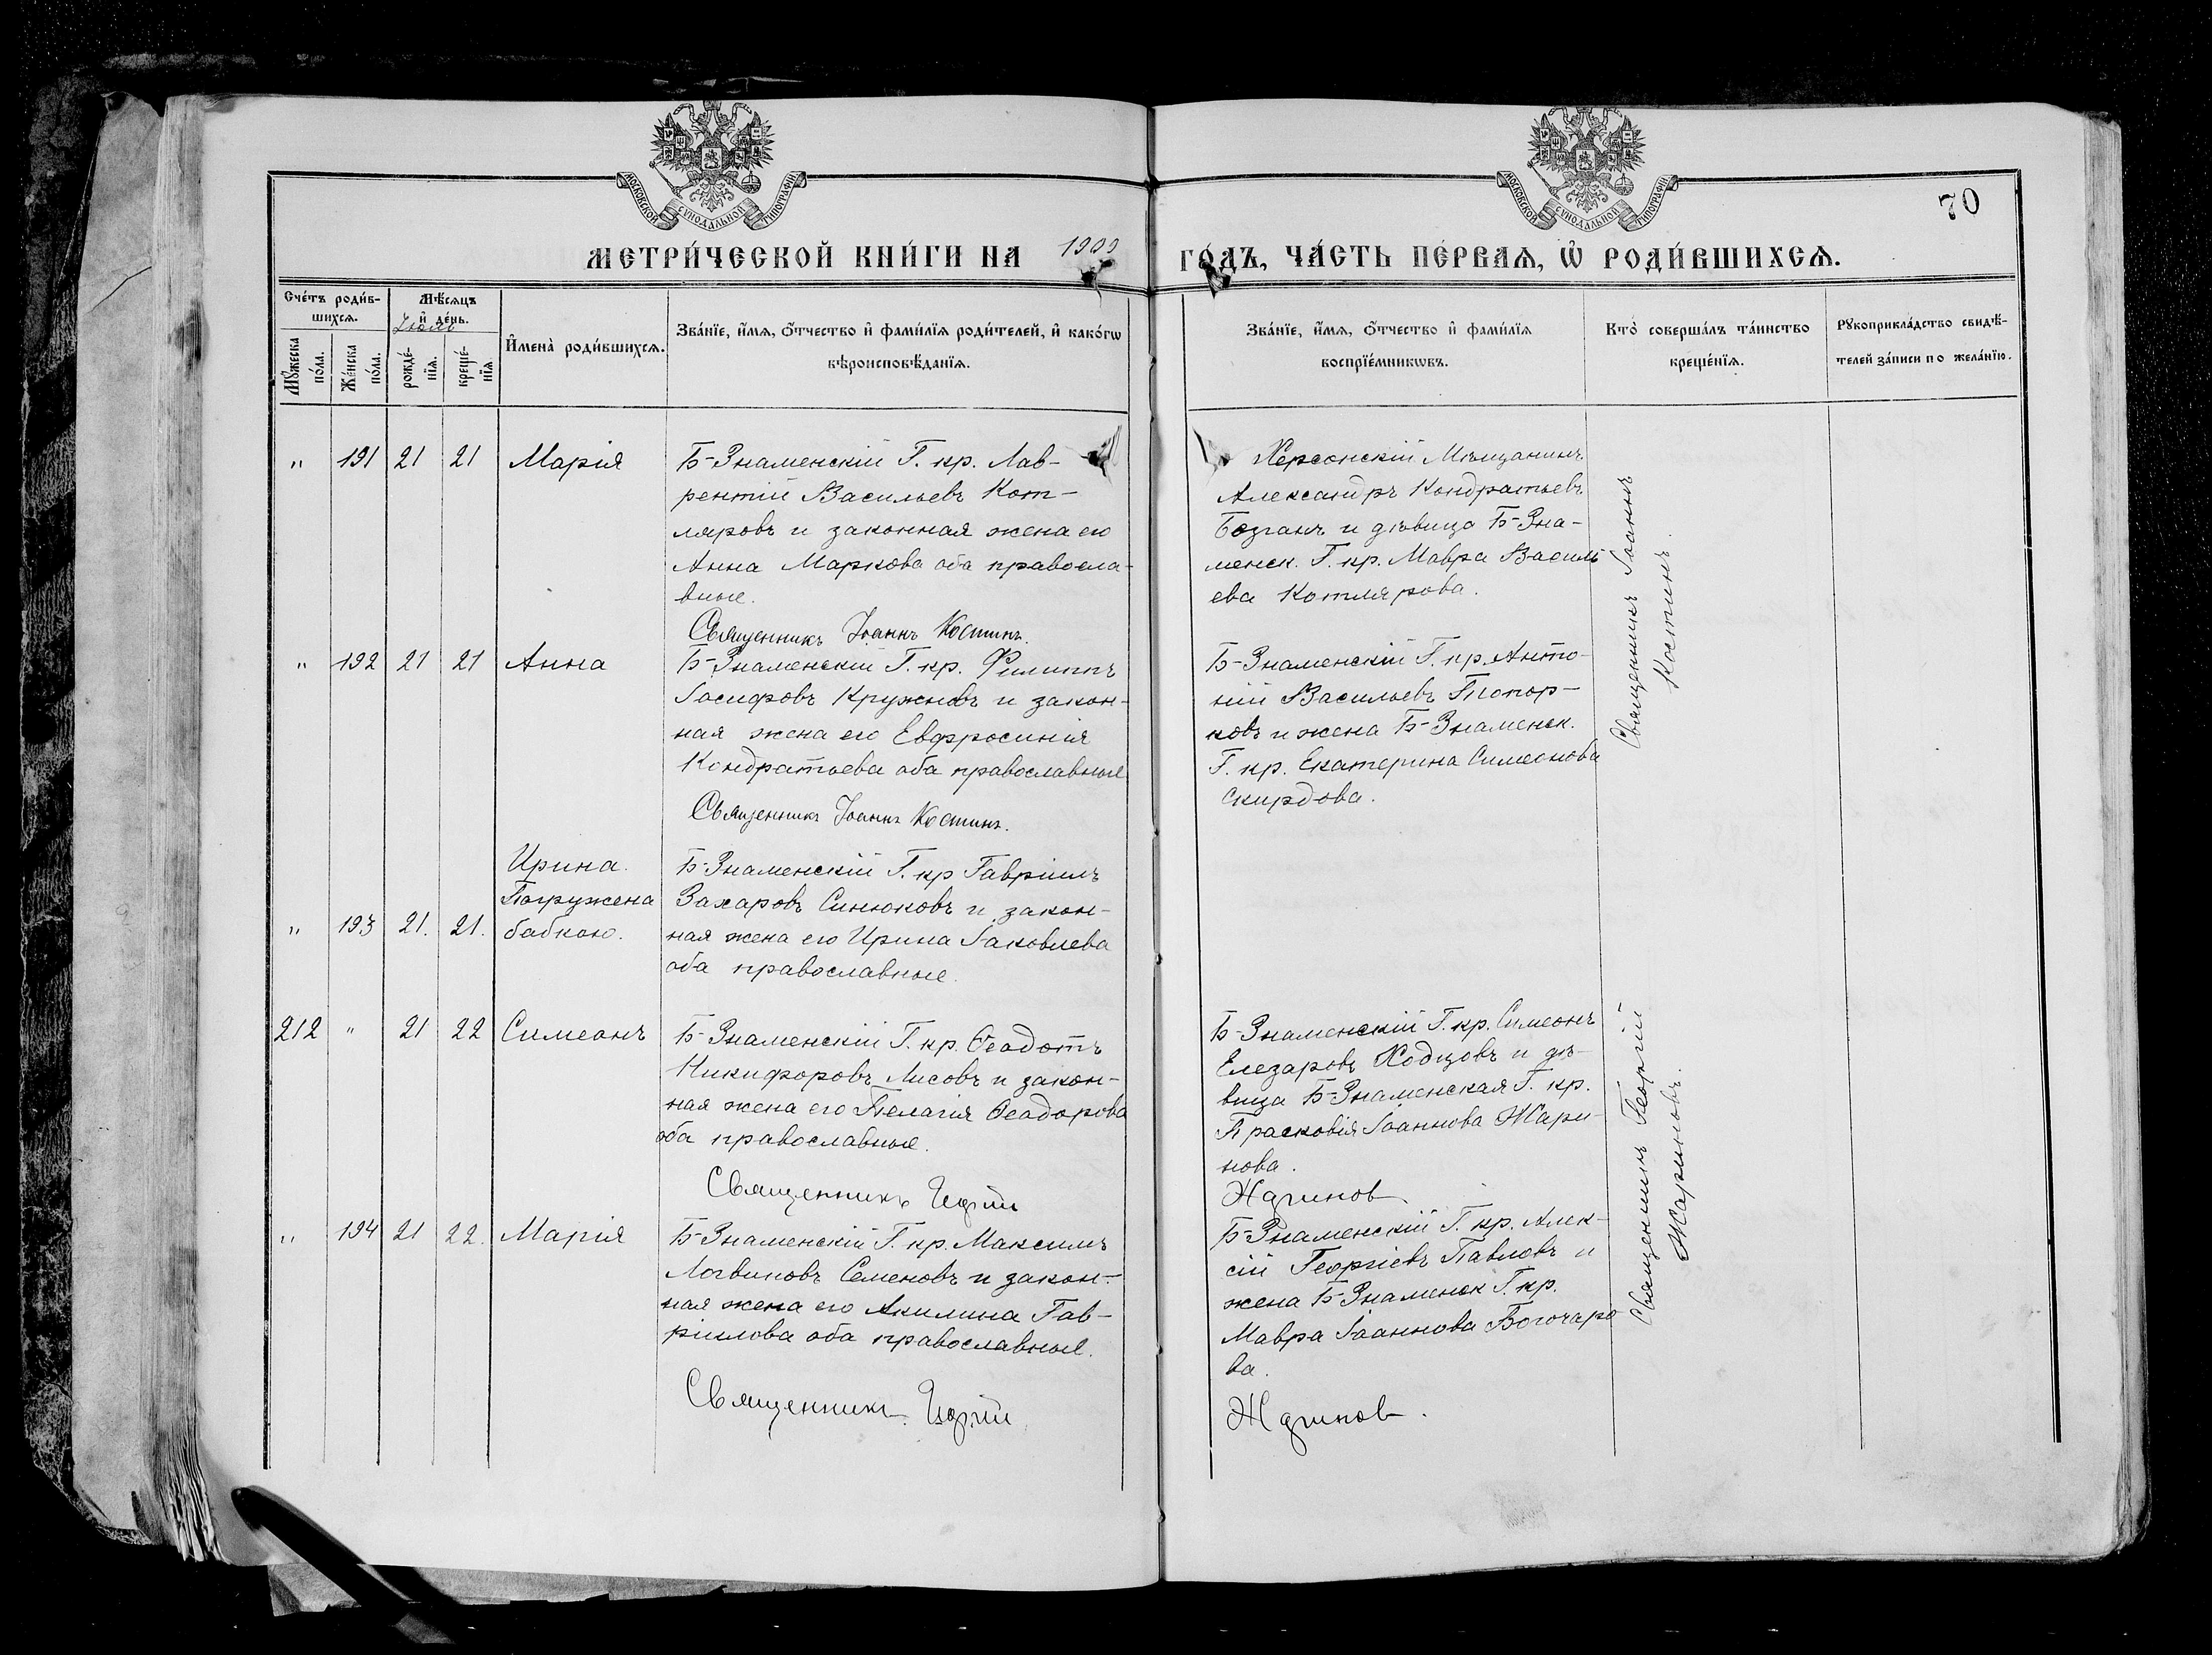 МОСКОВСКОЙ СѴНОДАЛЬНОЙ ТИПОГРАФІИ
МОСКОВСКОЙ СѴНОДАЛЬНОЙ ТИПОГРАФІИ
70
МЕТРИ́ЧЕСКОЙ КНИ́ГИ НА 1909 ГО́ДЪ, ЧА́СТЬ ПЕ́РВАѦ, Ѡ҆ РОДИ́ВШИХСѦ.
Сче́тъ роди́в-
шихсѧ.
Мꙋ́жеска по́ла.
Же́нска по́ла.
Мѣ́сѧцъ
и҆ де́нь.
Іюль
рожде́-
нїѧ.
креще́-
нїѧ
И҆менà роди́вшихсѧ.
Зва́нїе, и҆́мѧ, ѻ҆́тчество и҆ фами́лїѧ роди́телей, и҆ како́гѡ
вѣроисповѣ́данїѧ.
Зва́нїе, и҆́мѧ, ѻ҆́тчество и҆ фами́лїѧ
воспрїе́мникѡвъ.
Кто̀ соверша́лъ та́инство
креще́нїѧ.
Рꙋкоприкла́дство свидѣ́-
телей за́писи по жела́нїю.
" 191 21 21 Марія
Б-Знаменскій Г. кр. Лав-
рентій Васильевъ Кот-
ляровъ и законная жена его
Анна Маркова оба правосла-
вные.
Священникъ Іоаннъ Костинъ.
Херсонскій Мѣщанинъ
Александръ Кондратьевъ
Бозганъ и дѣвица Б-Зна-
менск. Г. кр. Мавра Василь
ева Котлярова.
" 192 21 21 Анна
Б-Знаменскій Г. кр. Филиппъ
Іосифовъ Кружновъ и закон-
ная жена его Евфросинія
Кондратьева оба православные
Священникъ Іоаннъ Костинъ.
Б-Знаменскій Г. кр. Анто-
ній Васильевъ Топор-
ковъ и жена Б-Знаменск.
Г. кр. Екатерина Симеонова
Скирдова.
Священникъ Іоаннъ
Костинъ.
" 193 21. 21.
Ирина.
Погружена
бабкою.
Б-Знаменскій Г. кр Гавріилъ
Захаровъ Синюковъ и закон-
ная жена его Ирина Іаковлева
оба православные.
212 " 21 22 Симеонъ
Б-Знаменскій Г. кр. Ѳеодотъ
Никифоровъ Лисовъ и закон-
ная жена его Пелагія Ѳеодорова
оба православные.
Священникъ Георгій
Б-Знаменскій Г. кр. Симеонъ
Елезаровъ Ходцовъ и дѣ-
вица Б-Знаменская Г. кр.
Прасковія Іоаннова Жари-
нова.
Жаринов
" 194 21 22. Марія
Б-Знаменскій Г. кр. Максимъ
Логвиновъ Семеновъ и закон-
ная жена его Акилина Гав-
ріилова оба православные.
Священникъ Георгій
Б-Знаменскій Г. кр. Алек-
сій Георгіевъ Павловъ и
жена Б-Знаменск Г. кр.
Мавра Іоаннова Богочаро
ва.
Жаринов.
Священникъ Георгій
Жариновъ.